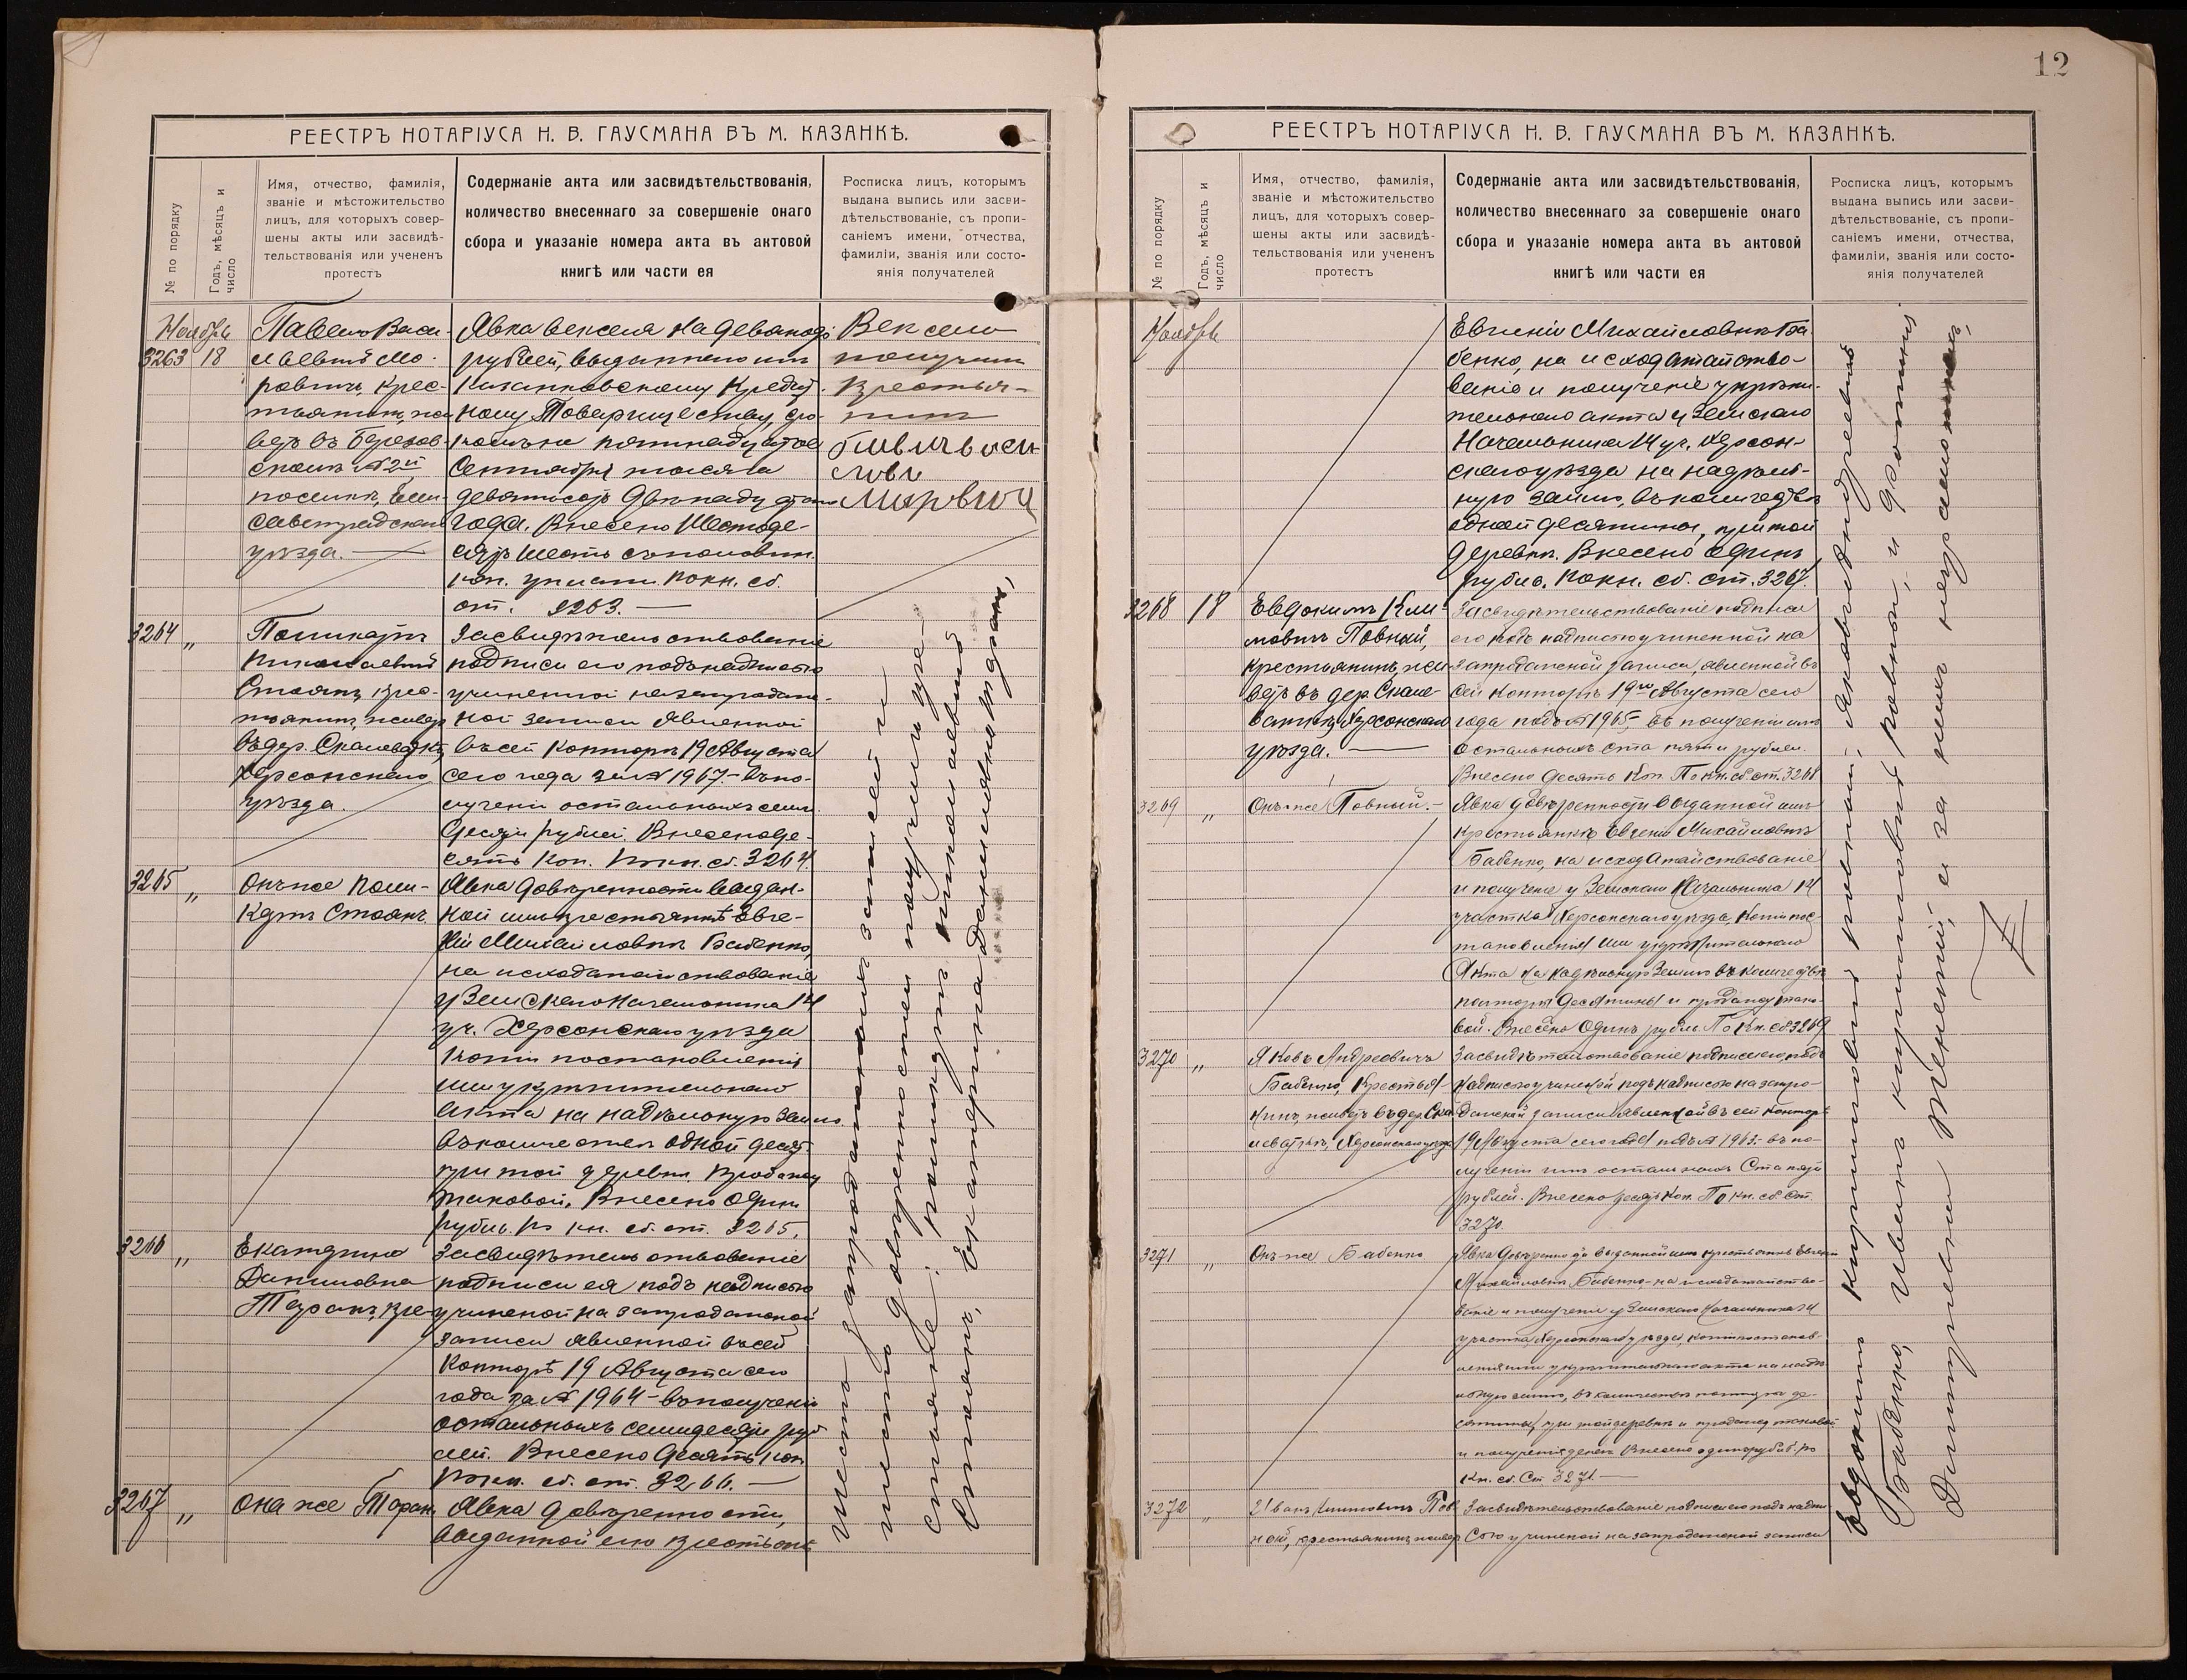 РЕЕСТРЪ НОТАРІУСА Н. В. ГАУСМАНА ВЪ М. КАЗАНКѢ.
№ по порядку
Годъ, мѣсяцъ и
число
Имя, отчество, фамилія,
званіе и мѣстожительство
лицъ, для которыхъ совер-
шены акты или засвидѣ-
тельствованія или учененъ
протестъ
Содержаніе акта или засвидѣтельствованія,
количество внесеннаго за совершеніе онаго
сбора и указаніе номера акта въ актовой
книгѣ или части ея
Росписка лицъ, которымъ
выдана выпись или засви-
дѣтельствованіе, съ пропи-
саніемъ имени, отчества,
фамиліи, званія или состо-
янія получателей
Ноябрь
3263 18
Павелъ Васи-
крес-
уѣзда.
Явка векселя на девяносто
рублей, выданнаго имъ
Казанковскому Кредит-
ному Товариществу, сро-
Сентября тысяча
девятьсотъ двѣнадцатаго
года. Внесено Шестьде-
сятъ шесть съ половин.
коп. по кн. сб.
ст. 3263.
Вексель
получилъ
Крестья-
нинъ
3264 "
Поликарпъ
Николаевичъ
Стоянъ, крес-
тьянинъ, живетъ
въ дер. Скалеваткѣ,
Херсонскаго
уѣзда.
Засвидѣтельствованіе
подписи его подъ надписью
учиненной на запродаж-
ной записи явленной
въ сей Конторѣ 19 Августа
сего года за № 1967 въ по-
лученіи остальныхъ семи-
десяти рублей. Внесено де-
сять Коп. По кн. сб. 3264.
3265 "
Онъ же Поли-
карпъ Стоянъ.
Явка довѣренности выдан-
ной имъ крестьянкѣ Евге-
ніи Михайловнѣ Бабенко,
на исходатайствованіе
у Земскаго Начальника 14
уч. Херсонскаго уѣзда
копіи постановленія
или укрѣпительнаго
Акта на надѣльную Землю
въ количествѣ одной десят.
при той деревнѣ, продажу
таковой. Внесено Одинъ
рубль. По кн. сб. ст. 3265.
3266 "
Екатерина
Даниловна
Таранъ, кре-
Засвидѣтельствованіе
подписи ея подъ надписью
учиненой на запродажной
записи явленной въ сей
Конторѣ 19 Августа сего
года за № 1964 - въ полученіи
остальныхъ семидесяти руб-
лей. Внесено Десять коп.
По кн. сб. ст. 3266.
3267 "
Она же Таранъ.
Явка довѣренности,
выданной ею крестьянкѣ
запродажными записей и
довѣренностей получили кре-
стьяне: Поликарпъ Николаевичъ
Стоянъ, Екатерина Даниловна Таранъ,
12
РЕЕСТРЪ НОТАРІУСА Н. В. ГАУСМАНА ВЪ М. КАЗАНКѢ.
№ по порядку
Годъ, мѣсяцъ и
число
Имя, отчество, фамилія,
званіе и мѣстожительство
лицъ, для которыхъ совер-
шены акты или засвидѣ-
тельствованія или учененъ
протестъ
Содержаніе акта или засвидѣтельствованія,
количество внесеннаго за совершеніе онаго
сбора и указаніе номера акта въ актовой
книгѣ или части ея
Росписка лицъ, которымъ
выдана выпись или засви-
дѣтельствованіе, съ пропи-
саніемъ имени, отчества,
фамиліи, званія или состо-
янія получателей
Ноябрь
Евгеніи Михайловнѣ Ба-
бенко, на исходатайство-
ваніе и полученіе укрѣпи-
тельнаго акта у Земскаго
Начальника 14 уч. Херсон-
скаго уѣзда на надѣль-
ную землю, въ количествѣ
одной десятины, при той
деревнѣ. Внесено Одинъ
рубль. По кн. сб. ст. 3267.
3268 18
Евдокимъ Кли-
мовичъ Повный,
крестьянинъ, жи-
ветъ въ дер. Скале-
ваткѣ, Херсонскаго
уѣзда.
Засвидѣтельствованіе подписи
его подъ надписью учиненной на
запродажной записи, явленной въ
сей Конторѣ 19го Августа сего
года подъ № 1965, въ полученіи имъ
остальныхъ ста пяти рублей.
Внесено Десять Коп. По кн. сб. ст. 3268
3269 "
Онъ же Повный.
Явка довѣренности выданной имъ
крестьянкѣ Евгеніи Михайловнѣ
Бабенко, на исходатайствованіе
и полученіе у Земскаго Начальника 14
участка Херсонскаго уѣзда, Копіи пос-
тановленія или укрѣпительнаго
Акта на надѣльную Землю въ количествѣ
полторы Десятины и продажу тако-
вой. Внесено Одинъ рубль. По Кн. сб. 3269
3270 "
Яковъ Андреевичъ
Бабенко, Крестья-
нинъ, живетъ въ дер. Ска-
леваткѣ, Херсонскаго уѣзда
Засвидѣтельствованіе подписи его подъ
надписью учиненной подъ надписью на запро-
дажной записи явленной въ сей Конторѣ
19 Августа сего года подъ № 1963 - въ по-
лученіи имъ остальныхъ Ста пяти
рублей. Внесено десять Коп. По кн. сб. Ст.
3270.
3271 "
Онъ же Бабенко
Явка довѣренности выданной имъ крестьянкѣ Евгеніи
Михайловнѣ Бабенко - на исходатайство-
ваніе и полученіе у Земскаго Начальника 14
участка, Херсонскаго уѣзда, копіи постанов-
ленія или укрѣпительнаго акта на надѣ-
льную землю, въ количествѣ полторы де-
сятины, при той деревнѣ и продажу таковой
и полученія денегъ Внесено одинъ рубль. По
Кн. сб. Ст. 3271.
3272 "
Иванъ Климовичъ Пов-
ной, крестьянинъ, живетъ
Засвидѣтельствованіе подписи его подъ надпи-
сью учиненой на запродажной записи
Евдокимъ Климовичъ Повный, Яковъ Андреевичъ
Бабенко, Иванъ Климовичъ Повный, и
а за нихъ неграмотныхъ,